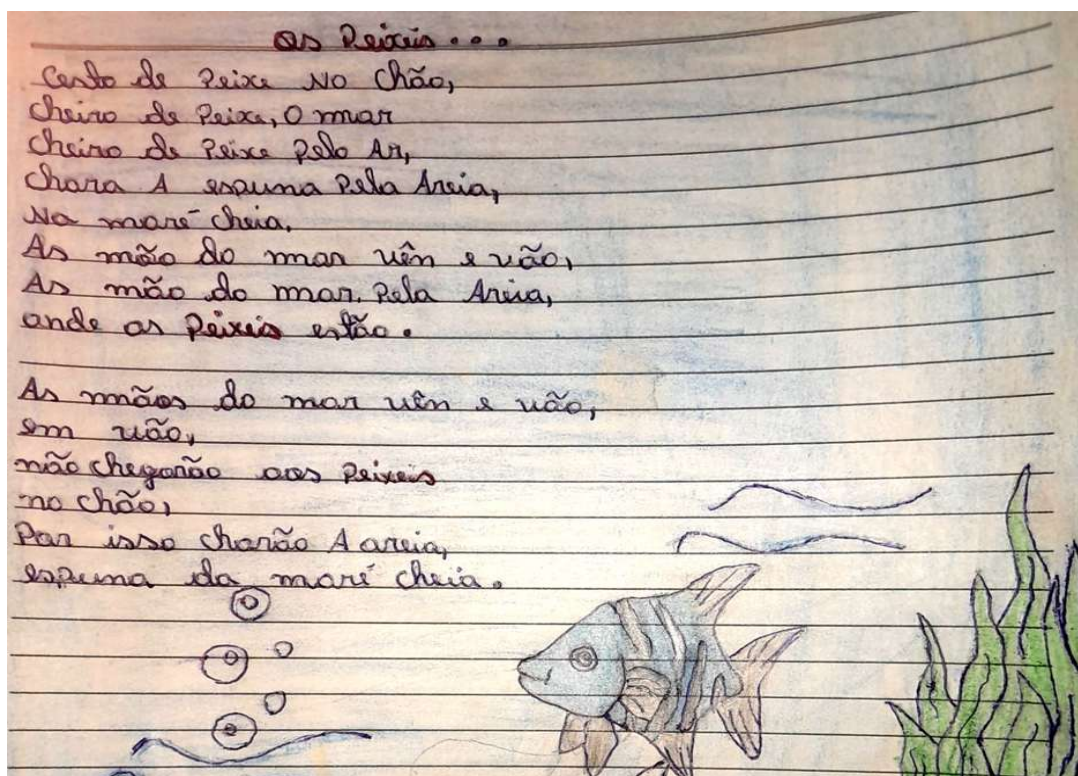 Os Peixeis...
Cesto de Peixe No Chão,
Cheiro de Peixe, O mar
Cheiro de Peixe Pelo Ar,
Chora A espuma Pela Areia,
Na maré cheia.
As mão do mar vên e vão,
As mão do mar. Pela Areia,
onde os Peixeis estão.
As mãos do mar vên e vão,
em vão,
não chegarão aos Peixeis
no chão,
Por isso chorão A areia,
espuma da maré cheia.